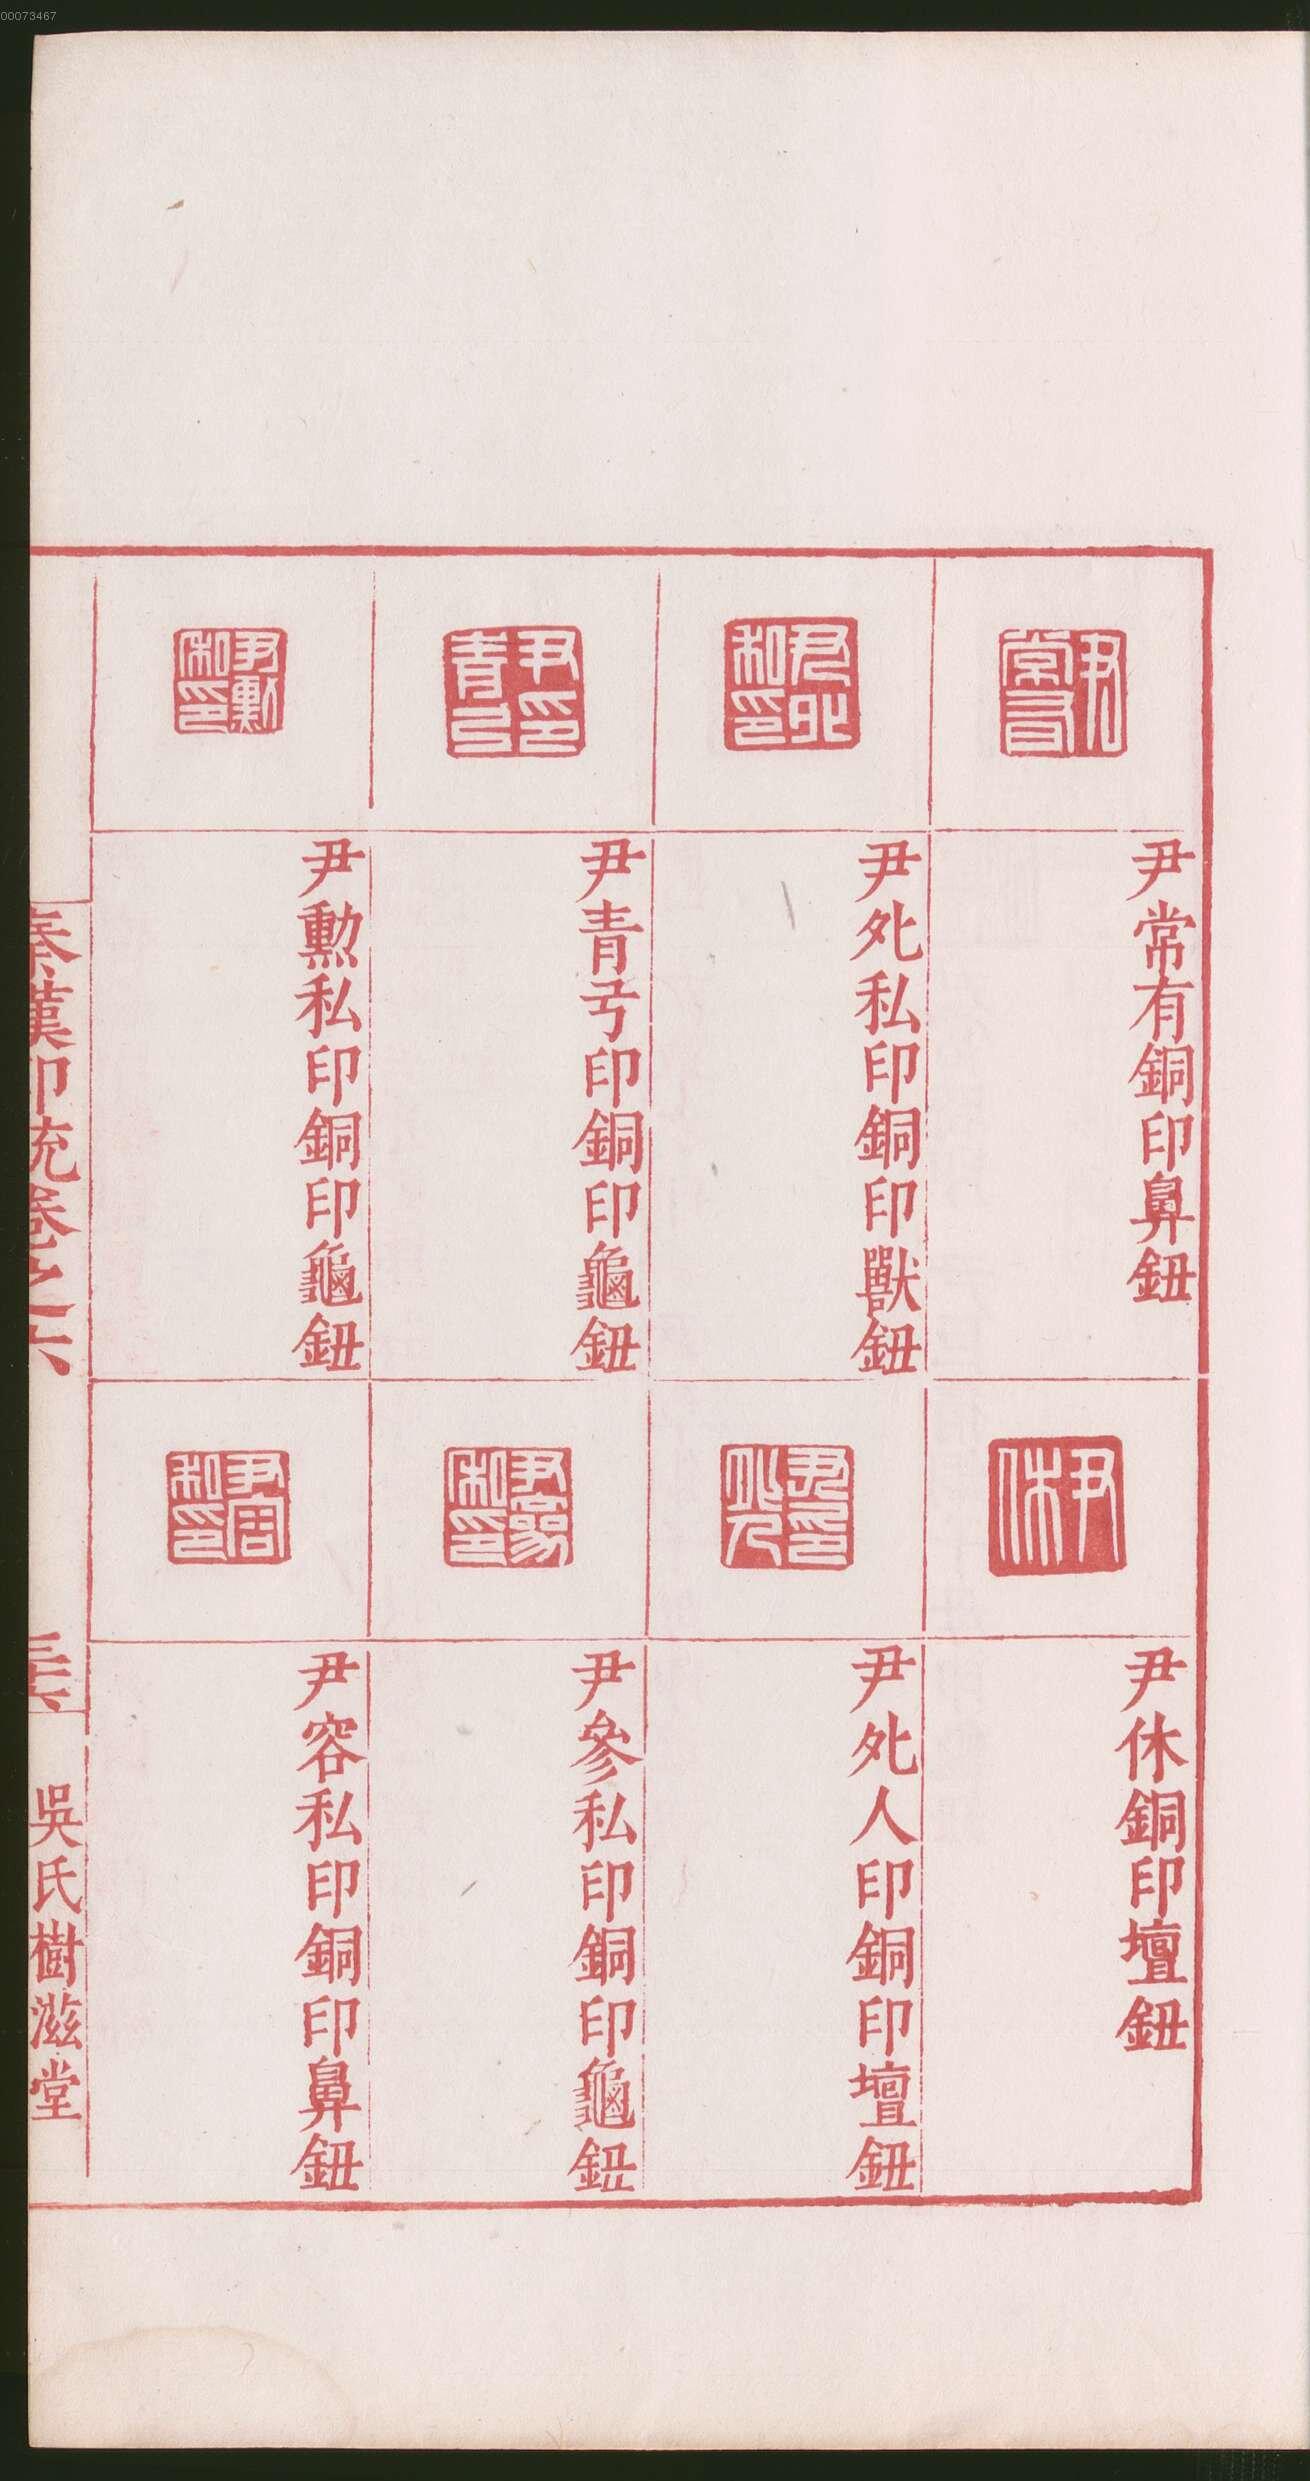 00073467
尹常有銅印鼻鈕
尹𡖉私印銅印獸鈕
尹青亏印銅印龜鈕
尹勲私印銅印龜鈕
尹休銅印壇鈕
尹𡖉人印銅印壇鈕
尹參私印銅印龜鈕
尹容私印銅印鼻鈕
秦漢印統卷之六
吳氏樹滋堂